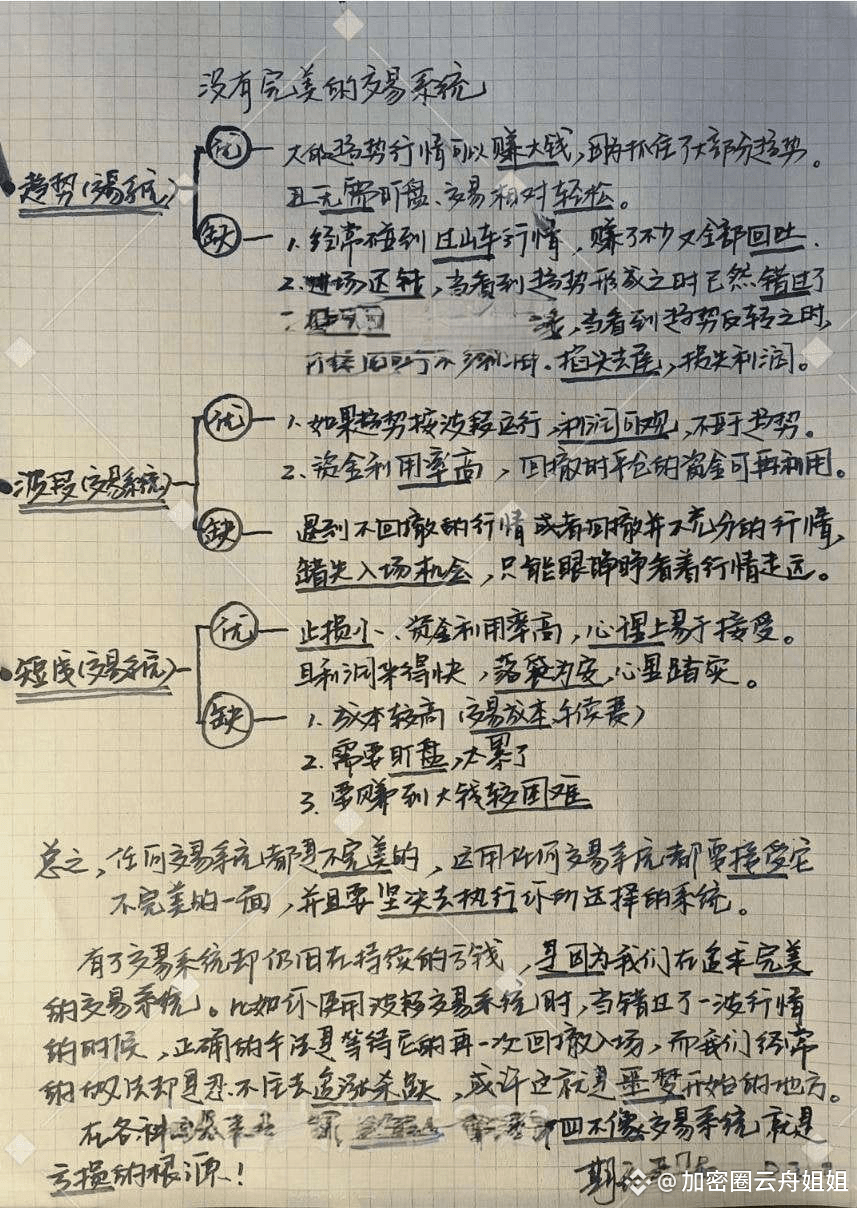 没有完美的交易系统
趋势(交易系统)
优 大的趋势行情可以赚大钱,因为抓住了大部分趋势。
且无需盯盘、交易相对轻松。
缺 1. 经常碰到过山车行情,赚了不少又全部回吐.
2. 进场迟钝,当看到趋势形成之时已然错过了
,当看到趋势反转之时,
掐头去尾,损失利润。
波段(交易系统)
优 1. 如果趋势按波段运行,利润可观,不亚于趋势。
2. 资金利用率高,回撤时平仓的资金可再利用。
缺 遇到不回撤的行情或者回撤并不充分的行情,
错失入场机会,只能眼睁睁看着行情走远。
短线(交易系统)
优 止损小、资金利用率高,心理上易于接受。
且利润来得快,落袋为安,心里踏实。
缺 1. 成本较高(交易成本,手续费)
2. 需要盯盘,太累了
3. 要赚到大钱较困难
总之,任何交易系统都是不完美的,运用任何交易系统都要接受它
不完美的一面,并且要坚决去执行你所选择的系统。
有了交易系统却仍旧在持续的亏钱,是因为我们在追求完美
的交易系统。比如你使用波段交易系统时,当错过了一波行情
的时候,正确的手法是等待它的再一次回撤入场,而我们经常
的做法却是忍不住去追涨杀跌,或许这就是噩梦开始的地方。
在各种 四不像交易系统就是
亏损的根源!
@加密圈云舟姐姐